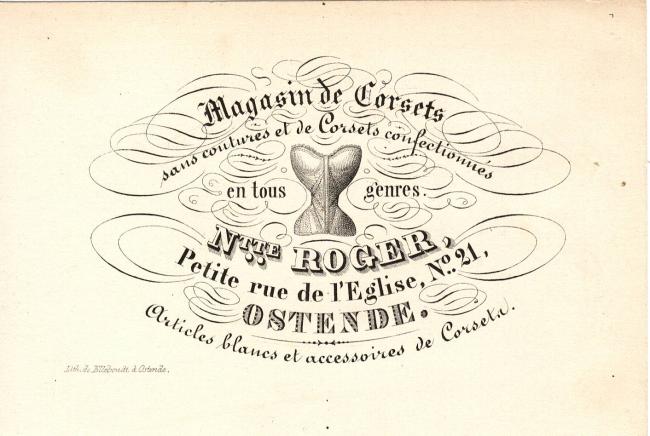 Magasin de Corsets
sans coutures et de Corsets confectionnés
en tous genres.
Nᵗᵗᵉ ROGER,
Petite rue de l'Eglise, Nº. 21,
OSTENDE.
Articles blancs et accessoires de Corsets.
Lith. de à Ostende.